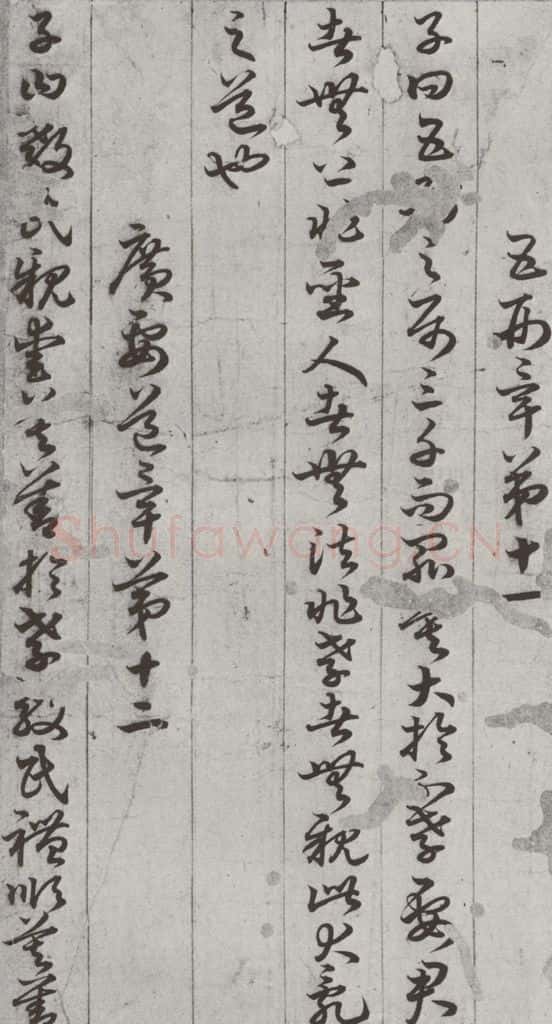 五刑章第十一
子曰五刑之屬三千而罪莫大於不孝要君
者無上非聖人者無法非孝者無親此大亂
之道也
廣要道章第十二
子曰教民親愛莫善於孝教民禮順莫善
Shufawang.CN